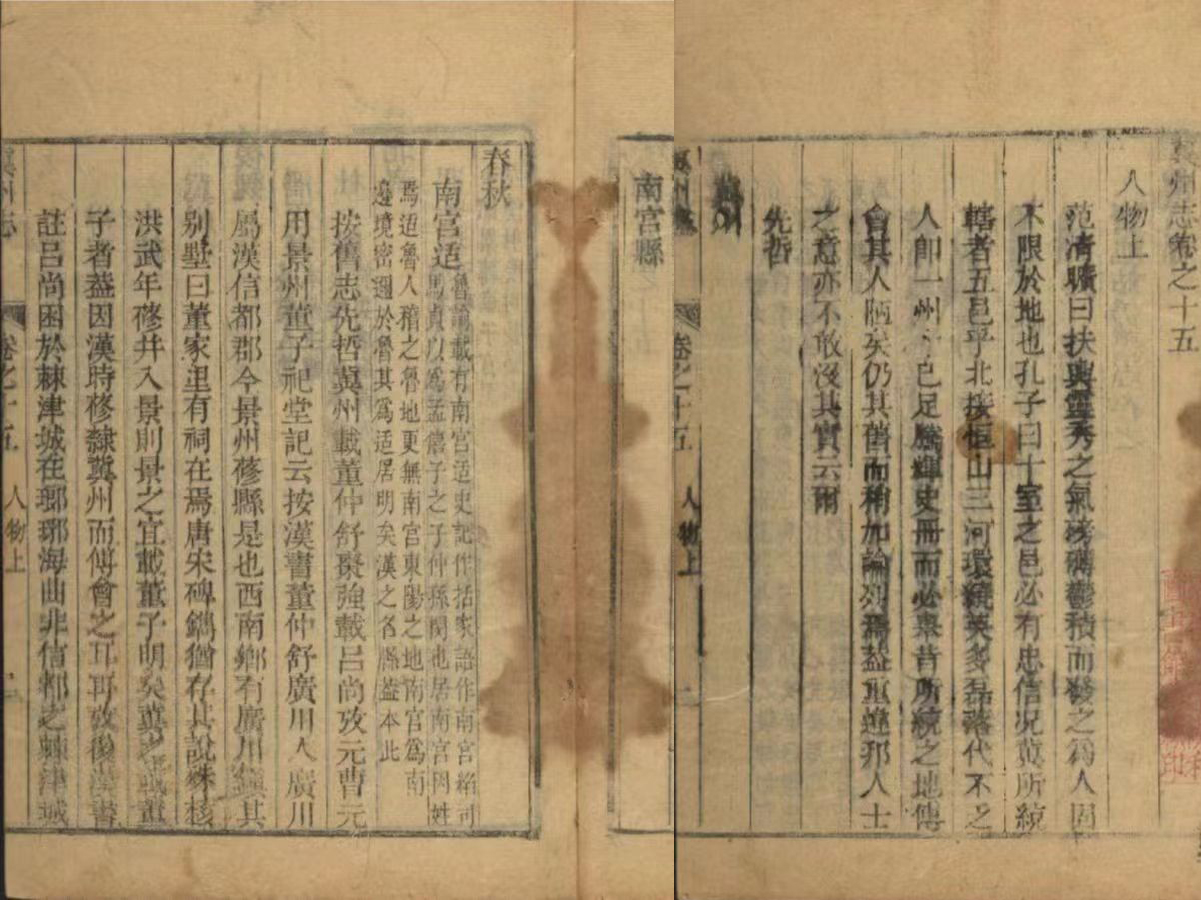 冀州志卷之十五
人物上
范清曠曰扶輿靈秀之氣磅礴鬱積而發之為人固
不限於地也孔子曰十室之邑必有忠信况冀所統
轄者五邑乎北接恒山三河環繞英多磊落代不乏
人卽一州已足騰輝史冊而必桒昔所統之地傳
會其人陋矣仍其舊而稍加論列焉葢重違邦人士
之意亦不敢沒其實云爾
先哲
冀州
冀州志 卷之十五 人物上 一
南宮縣
春秋
南宮适
魯論載有南宮适史記作括家語作南宮縚司
馬貞以為孟僖子之子仲孫閱也居南宮因姓
焉适魯人稽之魯地更無南宮東陽之地南宮為南
邊境密邇於魯其為适居明矣漢之名縣葢本此
按舊志先哲冀州載董仲舒棗強載呂尚攷元曹元
用景州董子祀堂記云按漢書董仲舒廣川人廣川
屬漢信都郡今景州蓨縣是也西南鄉有廣川鎮其
別墅曰董家里有祠在焉唐宋碑鐫猶存其說殊核
洪武年蓨并入景則景之宜載董子明矣冀之載董
子者葢因漢時蓨隸冀州而傅會之耳再攷後漢書
註呂尚困於棘津城在瑯琊海曲非信都之棘津城
冀州志 卷之十五 人物上 二